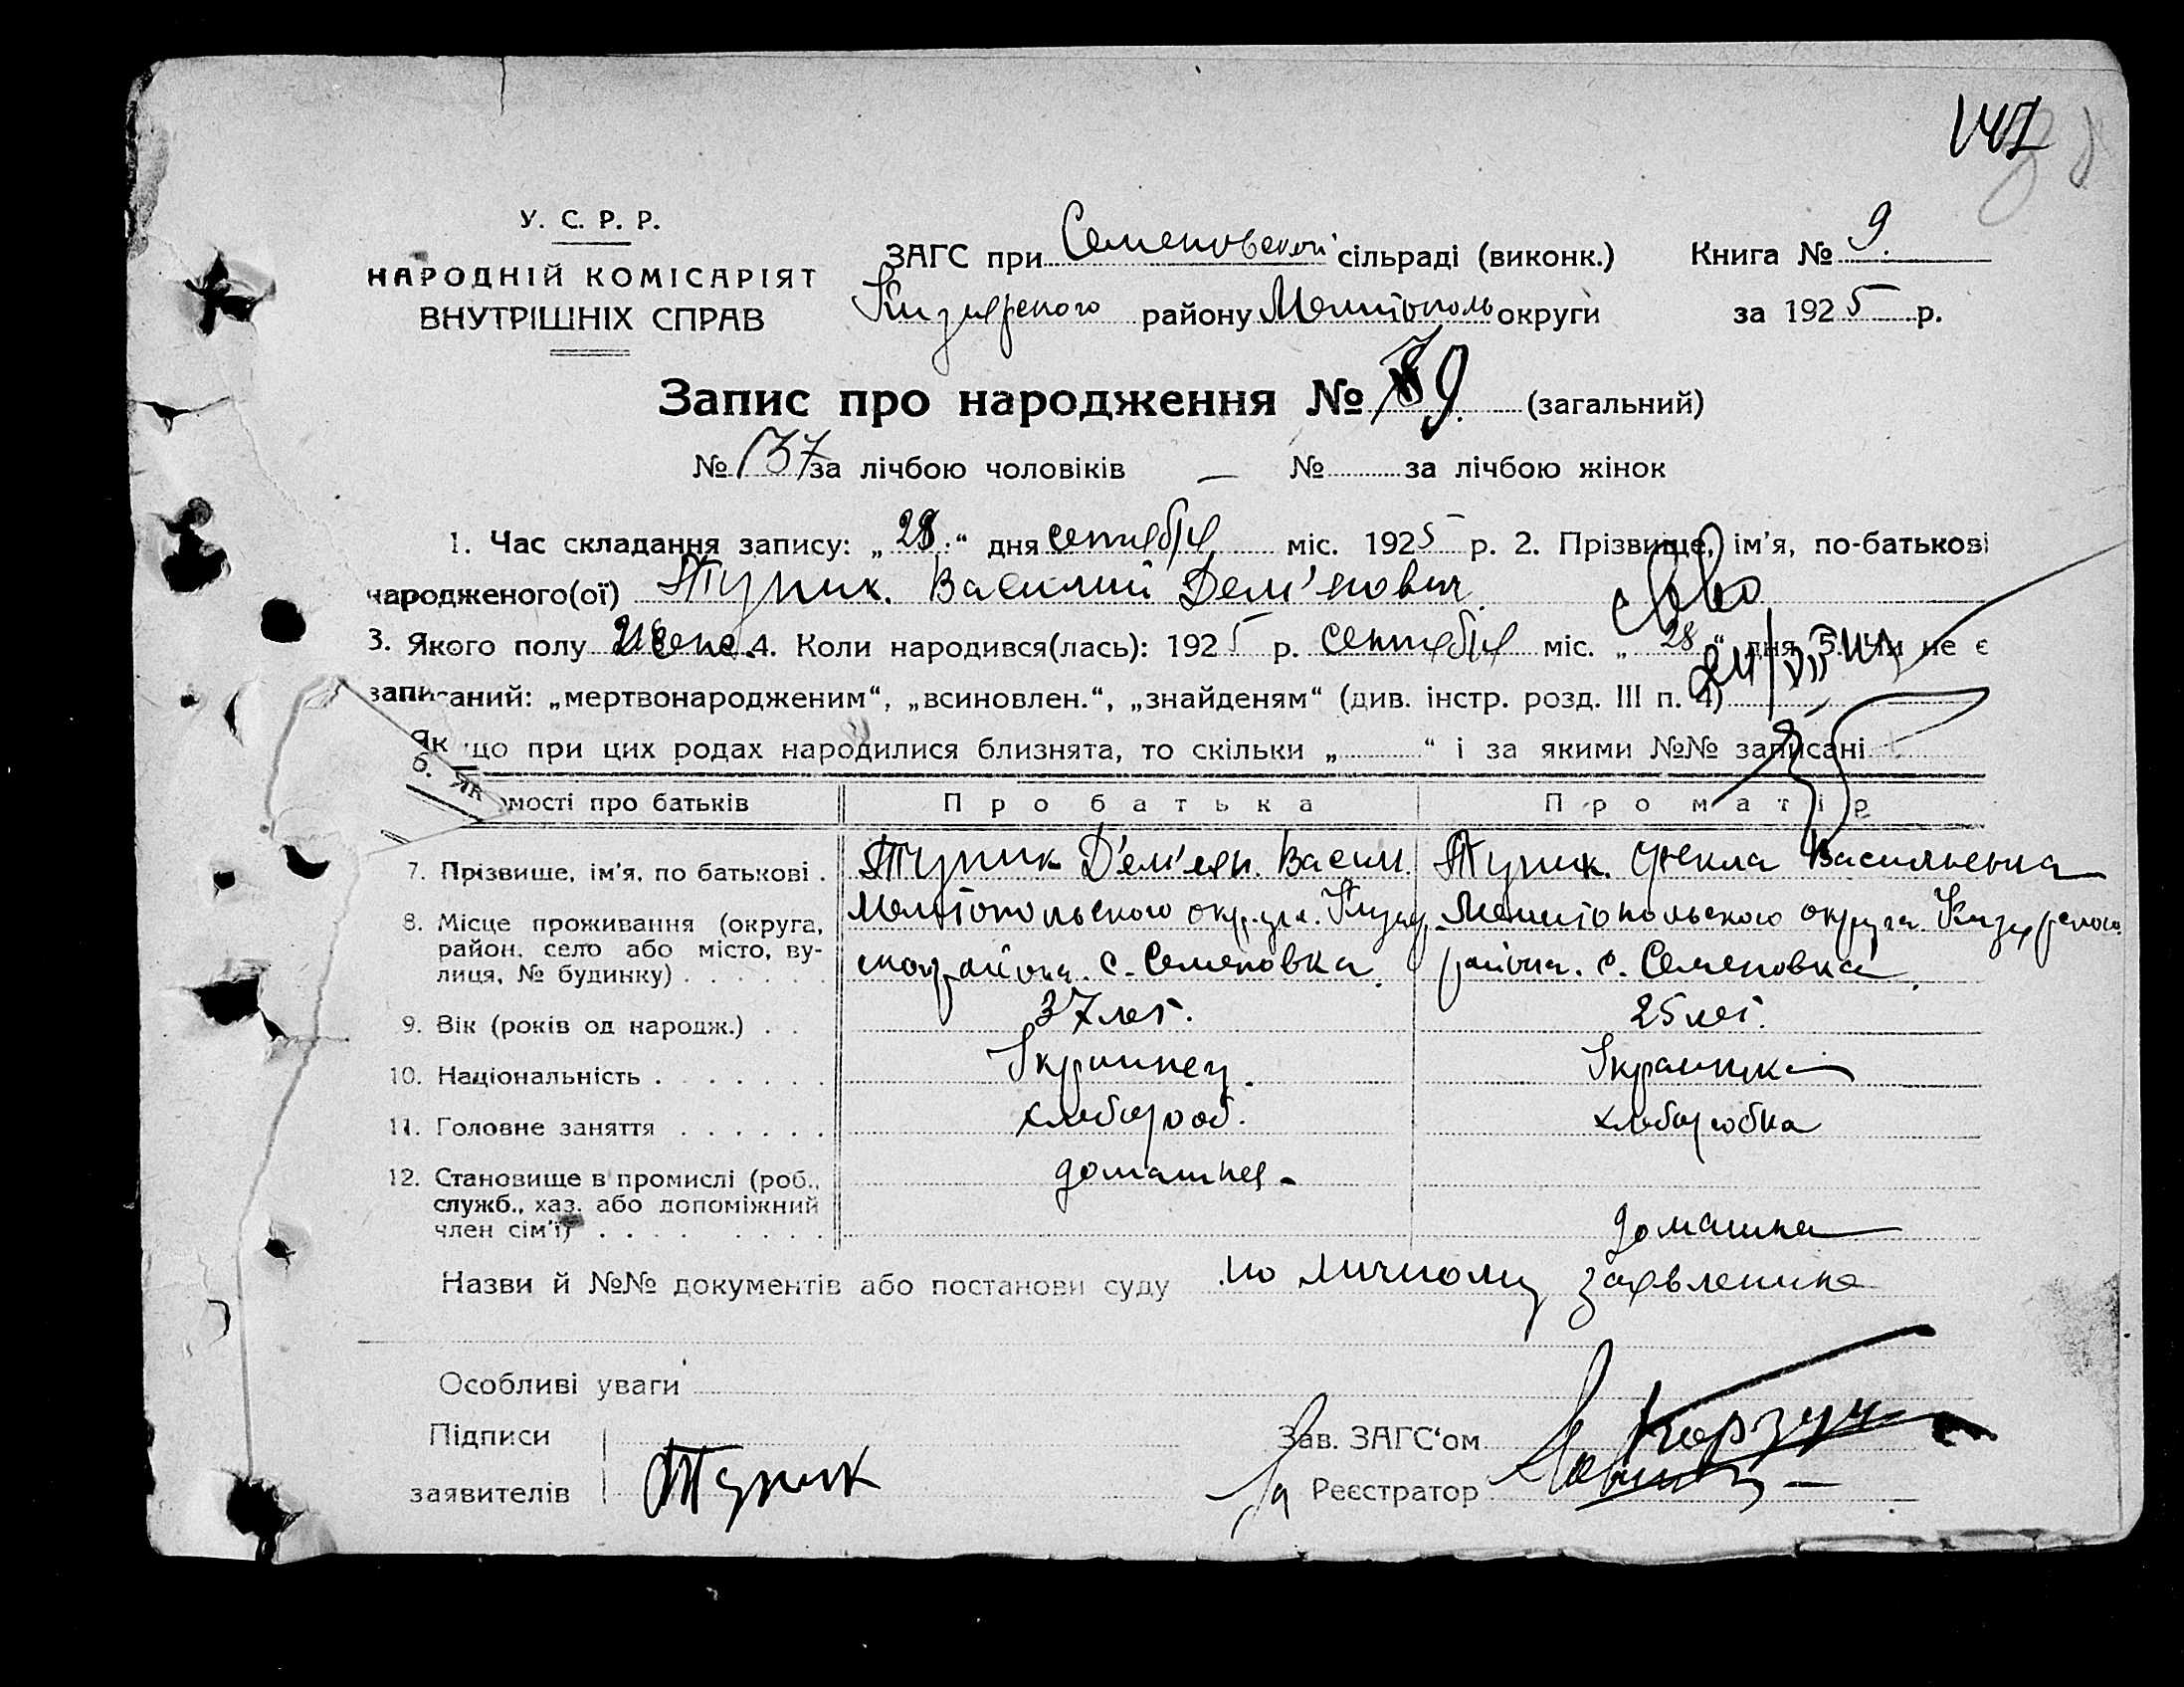 147
У. С. Р. Р.
НАРОДНІЙ КОМІСАРІЯТ
ВНУТРІШНІХ СПРАВ
ЗАГС при Семеновской сільраді (виконк.) Книга № 9.
Кизиярского району Мелитополь округи за 1925 р.
Запис про народження № 9. (загальний)
№ 137 за лічбою чоловіків — № за лічбою жінок
1. Час складання запису: „28.“ дня сентября міс. 1925 р. 2. Прізвище, ім'я, по-батькові
народженого(ої) Турик. Василий Дем'янович.
3. Якого полу 4. Коли народився(лась): 1925 р. сентября міс. „28“ дня 5. Чи не є
записаний: „мертвонародженим“, „всиновлен.“, „знайденям“ (див. інстр. розд. III п. 4)
6. Як
Якщо при цих родах народилися близнята, то скільки „ “ і за якими №№ записані
мості про батьків Про батька Про матір
7. Прізвище, ім'я, по батькові . Турик Дем'ян. Васил. Турик. Фекла Васильевна
8. Місце проживання (округа, район, село або місто, вулиця, № будинку) Мелитопольского округа. Кизияр
ского района. с. Семеновка. Мелитопольского округа Кизиярского
района. с. Семеновка.
9. Вік (років од народж.) . . 37 лет. 25 лет.
10. Національність . . . . . . . Украинец. Украинка
11. Головне заняття . . . . . . хлебороб. хлеборобка
12. Становище в промислі (роб., служб., хаз. або допоміжний член сім'ї) домашнея домашняя
Назви й №№ документів або постанови суду по личному заявлению
Особливі уваги
Підписи Зав. ЗАГС'ом
заявителів Турик За Реєстратор